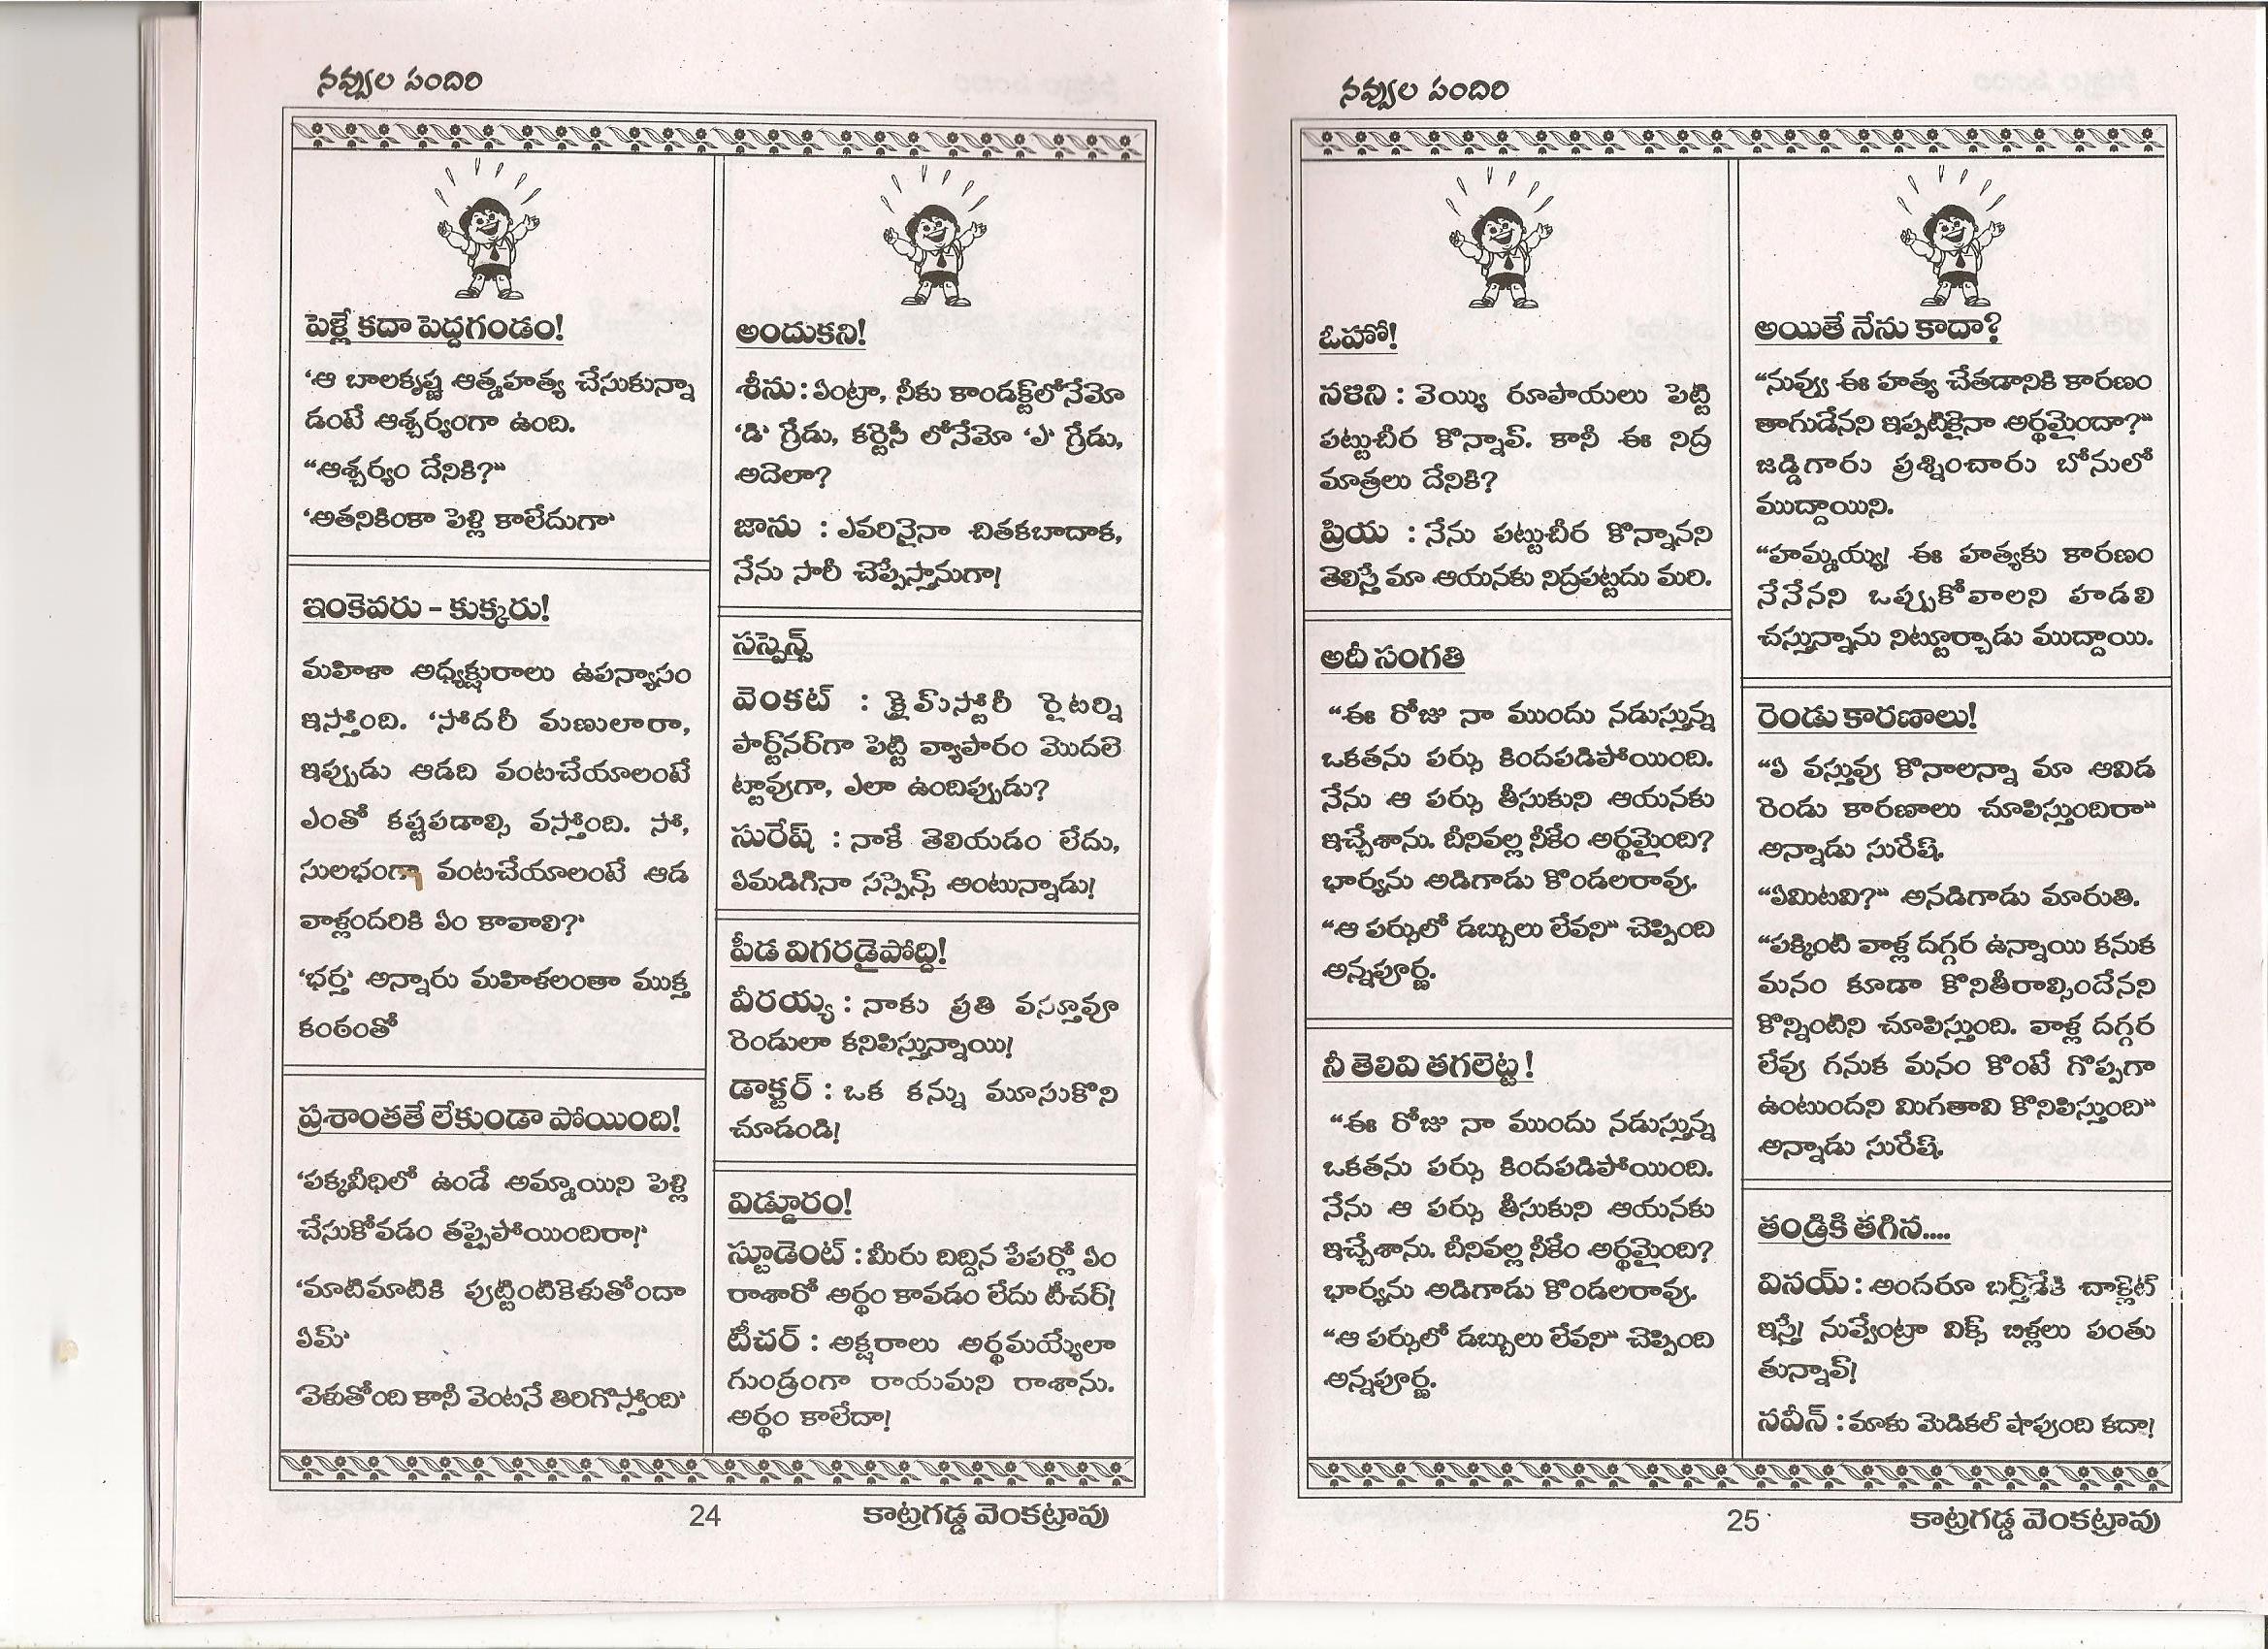 నవ్వుల పందిరి
పెళ్లే కదా పెద్దగండం!
‘ఆ బాలకృష్ణ ఆత్మహత్య చేసుకున్నా
డంటే ఆశ్చర్యంగా ఉంది.
“ఆశ్చర్యం దేనికి?”
‘అతనికింకా పెళ్లి కాలేదుగా’
ఇంకెవరు – కుక్కరు!
మహిళా అధ్యక్షురాలు ఉపన్యాసం
ఇస్తోంది. ‘సోదరీ మణులారా,
ఇప్పుడు ఆడది వంటచేయాలంటే
ఎంతో కష్టపడాల్సి వస్తోంది. సో,
సులభంగా వంటచేయాలంటే ఆడ
వాళ్లందరికి ఏం కావాలి?’
‘భర్త’ అన్నారు మహిళలంతా ముక్త
కంఠంతో
ప్రశాంతతే లేకుండా పోయింది!
‘పక్కవీధిలో ఉండే అమ్మాయిని పెళ్లి
చేసుకోవడం తప్పైపోయిందిరా!’
‘మాటిమాటికి పుట్టింటికెళుతోందా
ఏమ్’
‘వెళుతోంది కానీ వెంటనే తిరిగొస్తోంది’
అందుకని!
శీను : ఏంట్రా, నీకు కాండక్ట్‌లోనేమో
‘డి’ గ్రేడు, కర్టెసీ లోనేమో ‘ఎ’ గ్రేడు,
అదెలా?
జాను : ఎవరినైనా చితకబాదాక,
నేను సారీ చెప్పేస్తానుగా!
సస్పెన్స్
వెంకట్ : క్రైమ్‌స్టోరీ రైటర్ని
పార్ట్‌నర్‌గా పెట్టి వ్యాపారం మొదలె
ట్టావుగా, ఎలా ఉందిప్పుడు?
సురేష్ : నాకే తెలియడం లేదు,
ఏమడిగినా సస్పెన్స్ అంటున్నాడు!
పీడ విగరడైపోద్ది!
వీరయ్య : నాకు ప్రతి వస్తూవూ
రెండులా కనిపిస్తున్నాయి!
డాక్టర్ : ఒక కన్ను మూసుకొని
చూడండి!
విడ్డూరం!
స్టూడెంట్ : మీరు దిద్దిన పేపర్లో ఏం
రాశారో అర్థం కావడం లేదు టీచర్!
టీచర్ : అక్షరాలు అర్థమయ్యేలా
గుండ్రంగా రాయమని రాశాను.
అర్థం కాలేదా!
24
కాట్రగడ్డ వెంకట్రావు
నవ్వుల పందిరి
ఓహో!
నళిని : వెయ్యి రూపాయలు పెట్టి
పట్టుచీర కొన్నావ్. కానీ ఈ నిద్ర
మాత్రలు దేనికి?
ప్రియ : నేను పట్టుచీర కొన్నానని
తెలిస్తే మా ఆయనకు నిద్రపట్టదు మరి.
అదీ సంగతి
“ఈ రోజు నా ముందు నడుస్తున్న
ఒకతను పర్సు కిందపడిపోయింది.
నేను ఆ పర్సు తీసుకుని ఆయనకు
ఇచ్చేశాను. దీనివల్ల నీకేం అర్థమైంది?
భార్యను అడిగాడు కొండలరావు.
“ఆ పర్సులో డబ్బులు లేవని” చెప్పింది
అన్నపూర్ణ.
నీ తెలివి తగలెట్ట!
“ఈ రోజు నా ముందు నడుస్తున్న
ఒకతను పర్సు కిందపడిపోయింది.
నేను ఆ పర్సు తీసుకుని ఆయనకు
ఇచ్చేశాను. దీనివల్ల నీకేం అర్థమైంది?
భార్యను అడిగాడు కొండలరావు.
“ఆ పర్సులో డబ్బులు లేవని” చెప్పింది
అన్నపూర్ణ.
అయితే నేను కాదా?
“నువ్వు ఈ హత్య చేతడానికి కారణం
తాగుడేనని ఇప్పటికైనా అర్థమైందా?”
జడ్జిగారు ప్రశ్నించారు బోనులో
ముద్దాయిని.
“హమ్మయ్య! ఈ హత్యకు కారణం
నేనేనని ఒప్పుకోవాలని హడలి
చస్తున్నాను నిట్టూర్చాడు ముద్దాయి.
రెండు కారణాలు!
“ఏ వస్తువు కొనాలన్నా మా ఆవిడ
రెండు కారణాలు చూపిస్తుందిరా”
అన్నాడు సురేష్.
“ఏమిటవి?” అనడిగాడు మారుతి.
“పక్కింటి వాళ్ల దగ్గర ఉన్నాయి కనుక
మనం కూడా కొనితీరాల్సిందేనని
కొన్నింటిని చూపిస్తుంది. వాళ్ల దగ్గర
లేవు గనుక మనం కొంటే గొప్పగా
ఉంటుందని మిగతావి కొనిపిస్తుంది”
అన్నాడు సురేష్.
తండ్రికి తగిన....
వినయ్ : అందరూ బర్త్‌డేకి చాక్లెట్
ఇస్తే! నువ్వేంట్రా విక్స్ బిళ్లలు పంతు
తున్నావ్!
నవీన్ : మాకు మెడికల్ షాపుంది కదా!
25
కాట్రగడ్డ వెంకట్రావు